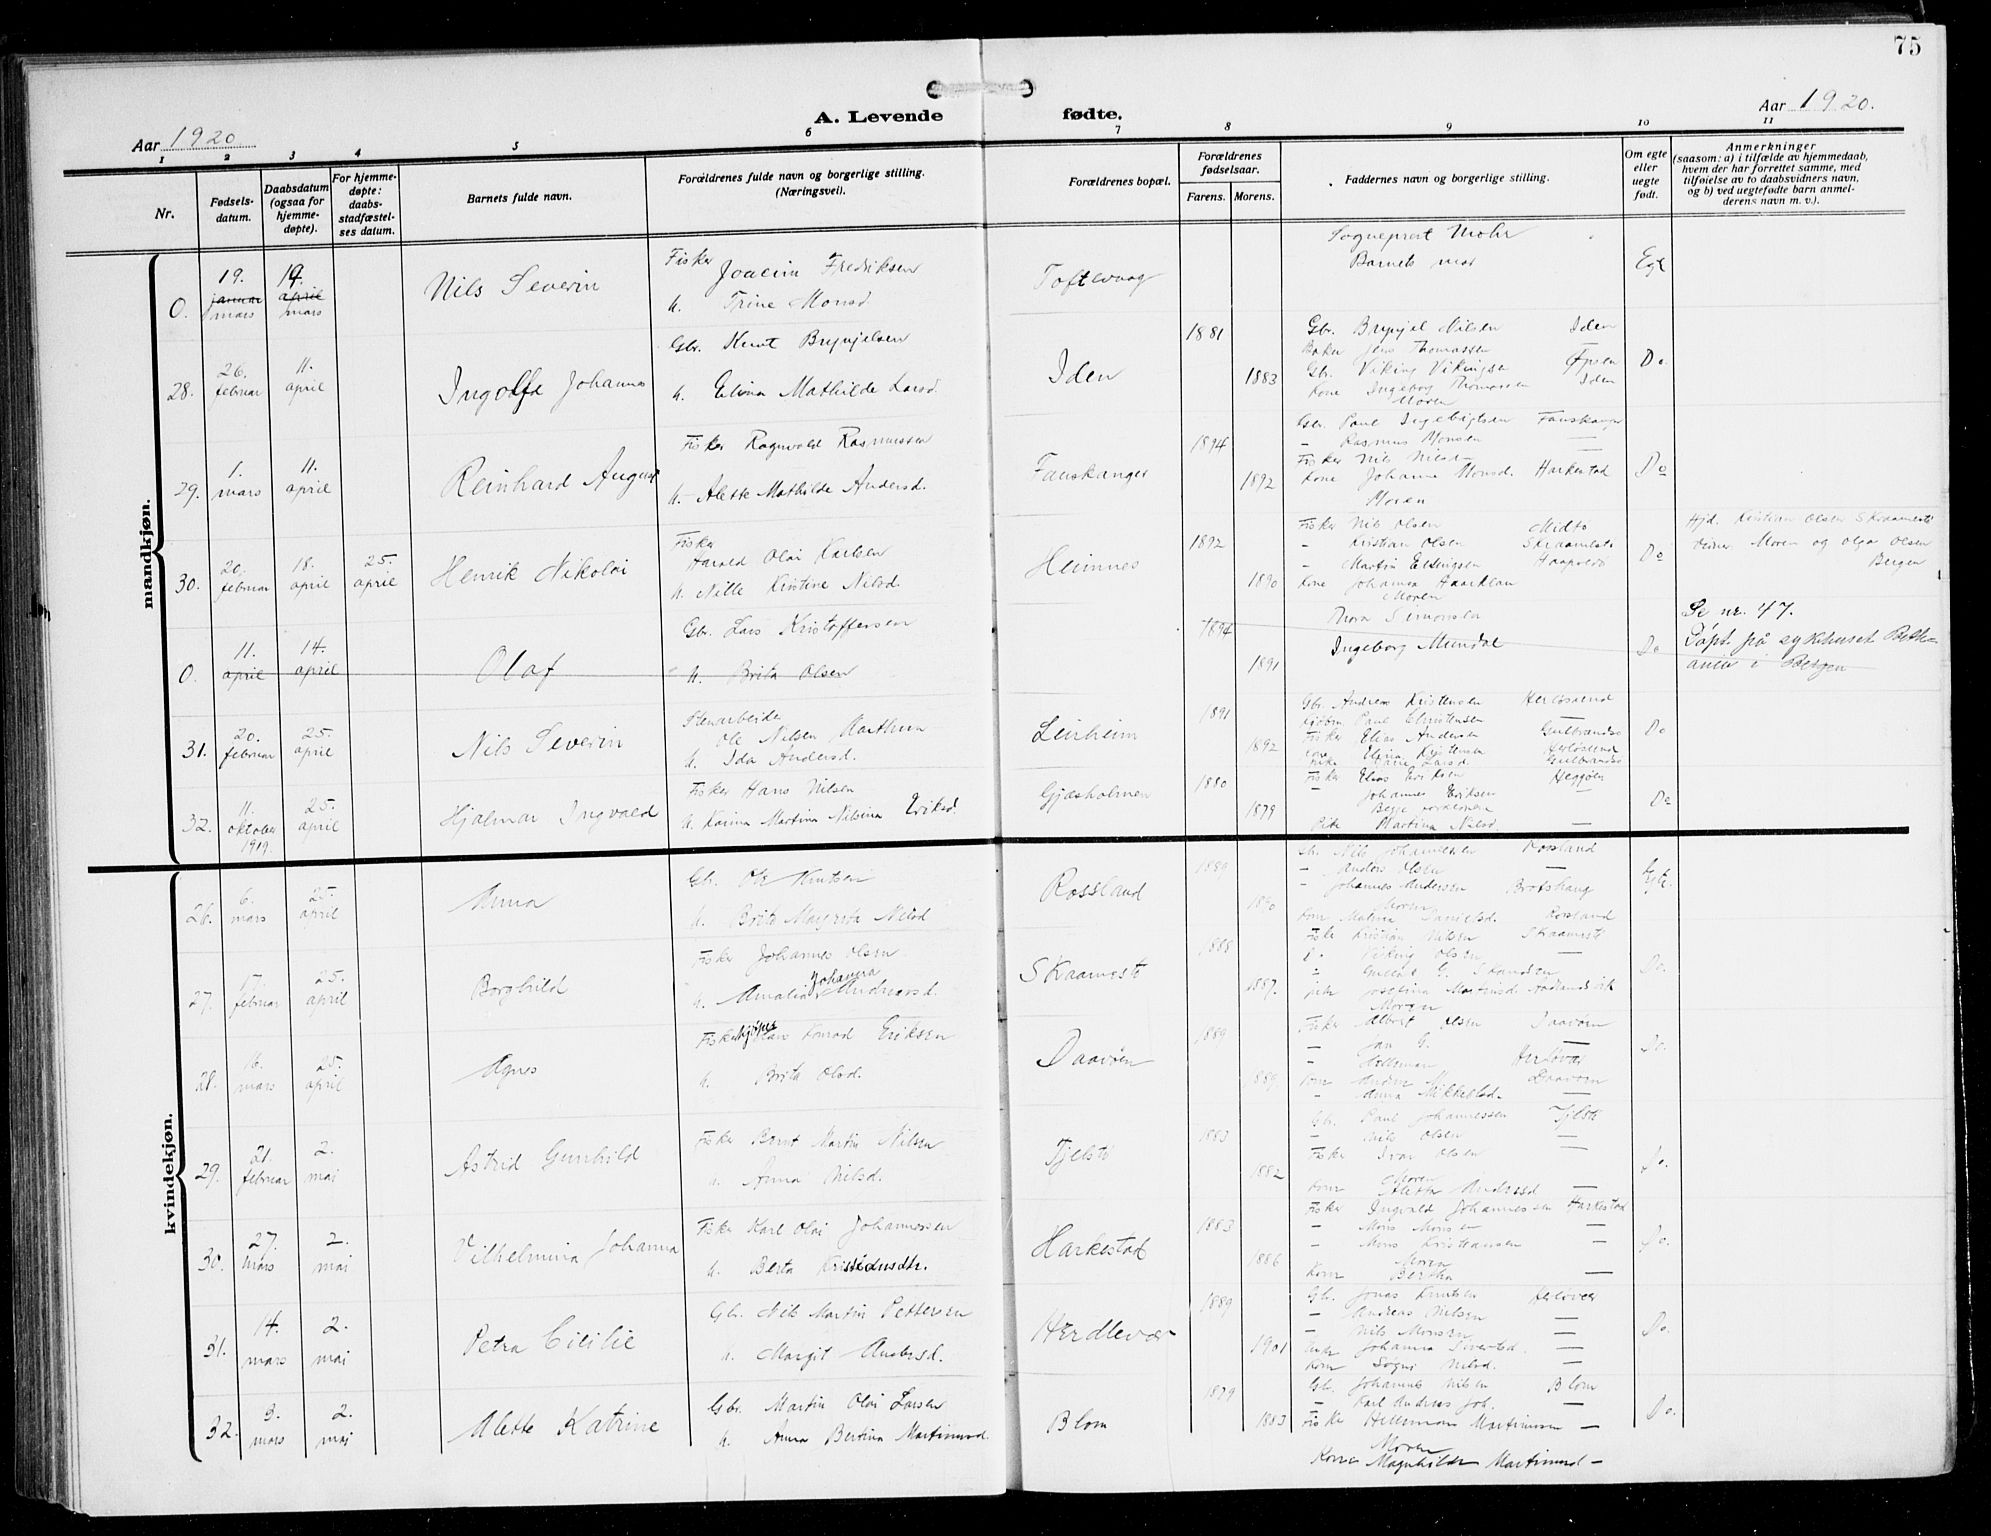 75
Aar 1920
A. Levende fødte.
Aar 1920.
1 2 3 4 5 6 7 8 9 10 11
Nr.
Fødsels-
datum.
Daabsdatum
(ogsaa for
hjemme-
døpte).
For hjemme-
døpte:
daabs-
stadfæstel-
ses datum.
Barnets fulde navn.
Forældrenes fulde navn og borgerlige stilling.
(Næringsvei).
Forældrenes bopæl.
Forældrenes
fødselsaar.
Farens. Morens.
Faddernes navn og borgerlige stilling.
Om egte
eller
uegte
født.
Anmerkninger
(saasom: a) i tilfælde av hjemmedaab,
hvem der har forrettet samme, med
tilføielse av to daabsvidners navn,
og b) ved uegtefødte barn anmel-
derens navn m. v.).
mandkjøn.
0.
19.
januar
mars
19.
april
mars
Nils Severin
Fisker
Joacim Fredriksen
h. Trine Monsd
Toftevaag
Sogneprest Mohr
Barnets mor
Egte
28.
26.
februar
11.
april
Johannes
Gbr. Knut Brynjelsen
h. Elina Mathilde Larsd.
Iden
1881
1883
Gbr. Brynjel Nilsen Iden
Baker Jens Thomassen
Gbr. Viking Vikingsen
Kone Ingeborg Thomassen Iden
Moren
Do.
29.
1.
mars
11.
april
Reinhard August
Fisker Ragnvald Rasmussen
h. Alette Mathilde Andersd.
Fauskanger
1894
1892
Gbr. Paul Ingebrigtsen Fauskanger
— Rasmus Monsen —
Fisker Nils Nilsen
Kone Johanne Monsd. Harkestad
Moren
Do
30.
20.
februar
18.
april
25.
april
Henrik Nikolai
Fisker
Harald Olai Karlsen
h. Nille Kristine Nilsd.
Heimnes
1892
1890
Fisker Nils Olsen Midtø
— Kristian Olsen Skraamestø
— Martin
Kone Johanna
Moren
Do
Hjd. Kristian Olsen Skraamestø
Vidner. Moren og Olga Olsen
Bergen
0.
11.
april
14.
april
Olaf
Gbr. Lars Kristoffersen
h. Brita Olsen
1894
1891
Nora Simonsen
Ingeborg Mundal
Do
Se nr. 47.
Døpt på sykehuset Beth-
ania i Bergen
31.
20.
februar
25.
april
Nils Severin
Stenarbeider
Ole Nilsen
h. Ida Andersd.
1891
1892
Gbr. Andreas Kristensen
Paul Christensen —
Fisker Elias Andersen
Kone Elina Kristensen
Do
32.
11.
oktober
1919.
25.
april
Hjalmar Ingvald
Fisker Hans Nilsen
h. Karina Martina Nilsina Eriksd.
Gjæsholmen
1880
1879
Fisker Elias Eriksen Heggøen
— Johannes Eriksen —
Begge forældrene
Pike Martina Nilsd. —
Do
kvindekjøn.
26.
6.
mars
25.
april
Anna
Gbr. Ole Knutsen
h. Brita Margreta Nilsd
Rossland
1889
1890
Gbr. Nils Johannesen Rossland
— Anders Olsen —
— Johannes Andersen
Moren
Kone Malena Danielsd. Rossland
Egte.
27.
17.
februar
25.
april
Borghild
Fisker Johannes Olsen
h. Amalia Johanna Andreasd.
Skaamestø
1888
1887.
Fisker Kristian Nilsen Skaamestø
Do. Viking Olsen —
Pike Josefina Martinsd.
Moren
Do.
28.
16.
mars
25.
april
Agnes
Fisker Konrad Eriksen
h. Brita Olsd.
Daavøen
1889
1889.
Fisker Albert Olsen Daavøen
— Jan G. —
Herløvær
Daavøen
— Anna Mikkelsd. —
Do.
29.
21.
februar
2.
mai
Astrid Gunhild
Fisker Bernt Martin Nilsen
h. Anna Nilsd.
Tjelstø
1883
1882
Gbr. Paul Johannessen Tjelstø
— Nils Olsen —
Fisker Ivar Olsen —
Moren
Kone Aletta Andersd —
Do.
30.
27.
mars
2.
mai
Vilhelmina Johanna
Fisker Karl Olai Johannessen
h. Berta
Harkestad
1883
1886
Fisker Ingvald Johannessen Harkestad
— Mons Monsen —
— Mons Kristiansen —
Moren
Kone Bertha —
Do.
31.
14.
mars
2.
mai
Petra Cicilie
Gbr. Nils Martin Pettersen
h. Margit Andersd.
Herdlevær
1889
1901
Gbr. Jonas Knutsen Herløvær
— Andreas Nilsen —
— Nils Monsen —
Johanna Sivertsd. —
Kone Søgni Nilsd. —
Do.
32.
3.
mars
2.
mai
Alette Katrine
Gbr. Martin Olai Larsen
h. Anna Bertina Martinusd.
Blom
1879
1883
Gbr. Johannes Nilsen Blom
— Karl Andreas Joh. —
Fisker Hilleman Martinusen —
Moren
Kone Magnhilde Martinusd —
Do.